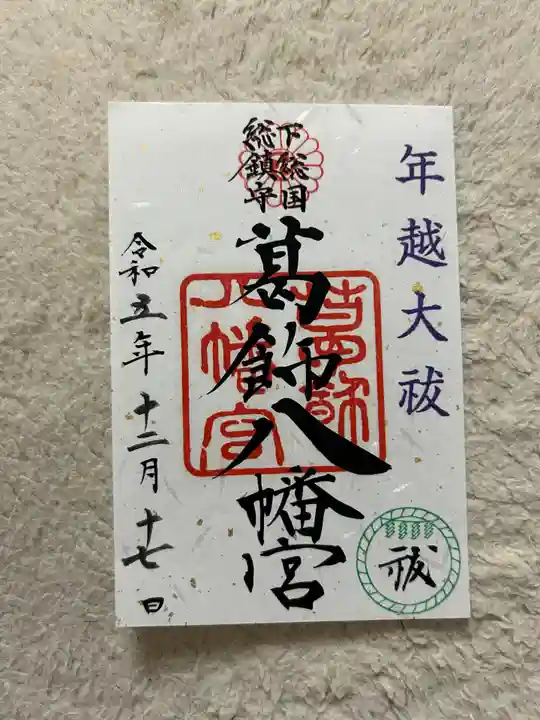 年越大祓
下総国
総鎮守
葛飾八幡宮
葛飾
八幡宮
令和五年十二月十七日
祓